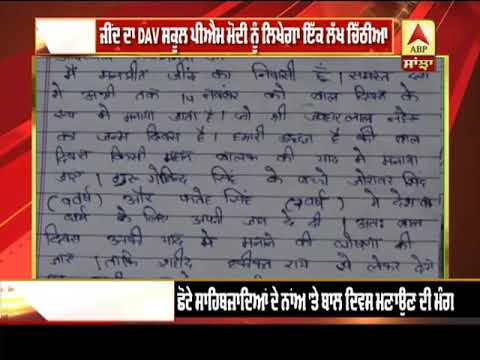 ਜੀਂਦ ਦਾ DAV ਸਕੂਲ ਪੀਐਮ ਮੋਦੀ ਨੂੰ ਲਿਖੇਗਾ ਇੱਕ ਲੱਖ ਚਿੱਠੀਆ
abp
ABP
ਸਾਂਝਾ
मैं मनप्रीत जींद का निवासी हूँ। समस्त देश
में अभी तक 14 नवम्बर को बाल दिवस के
रूप में मनाया जाता है। जो श्री जवाहर लाल नेहरू
का जन्म दिवस है। हमारी इच्छा है की बाल
दिवस किसी महान बालक की याद में मनाया
जाए। गुरु गोबिन्द सिंह के बच्चों जोरावर सिंह
(9वर्ष) और फतेह सिंह (7वर्ष) ने देश की
धर्म के लिए अपनी जान दे दी। अतः बाल
दिवस उनकी याद में मनाने की घोषणा की
जाए। ताकि शहीद हकीकत राय से लेकर
ਛੋਟੇ ਸਾਹਿਬਜ਼ਾਦਿਆਂ ਦੇ ਨਾਂਅ 'ਤੇ ਬਾਲ ਦਿਵਸ ਮਣਾਉਣ ਦੀ ਮੰਗ